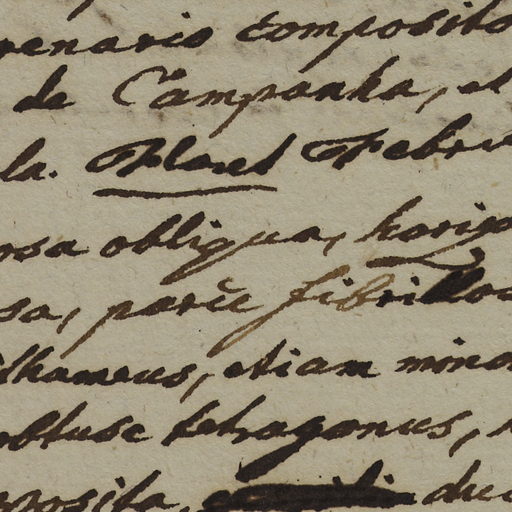 renario composito
de Campanha, et
la. Floret Febru
osa obliqua, horizo
sa, parce fibrillos
ithameus, etiam minor
obtuse tetragonus,
posita, duc